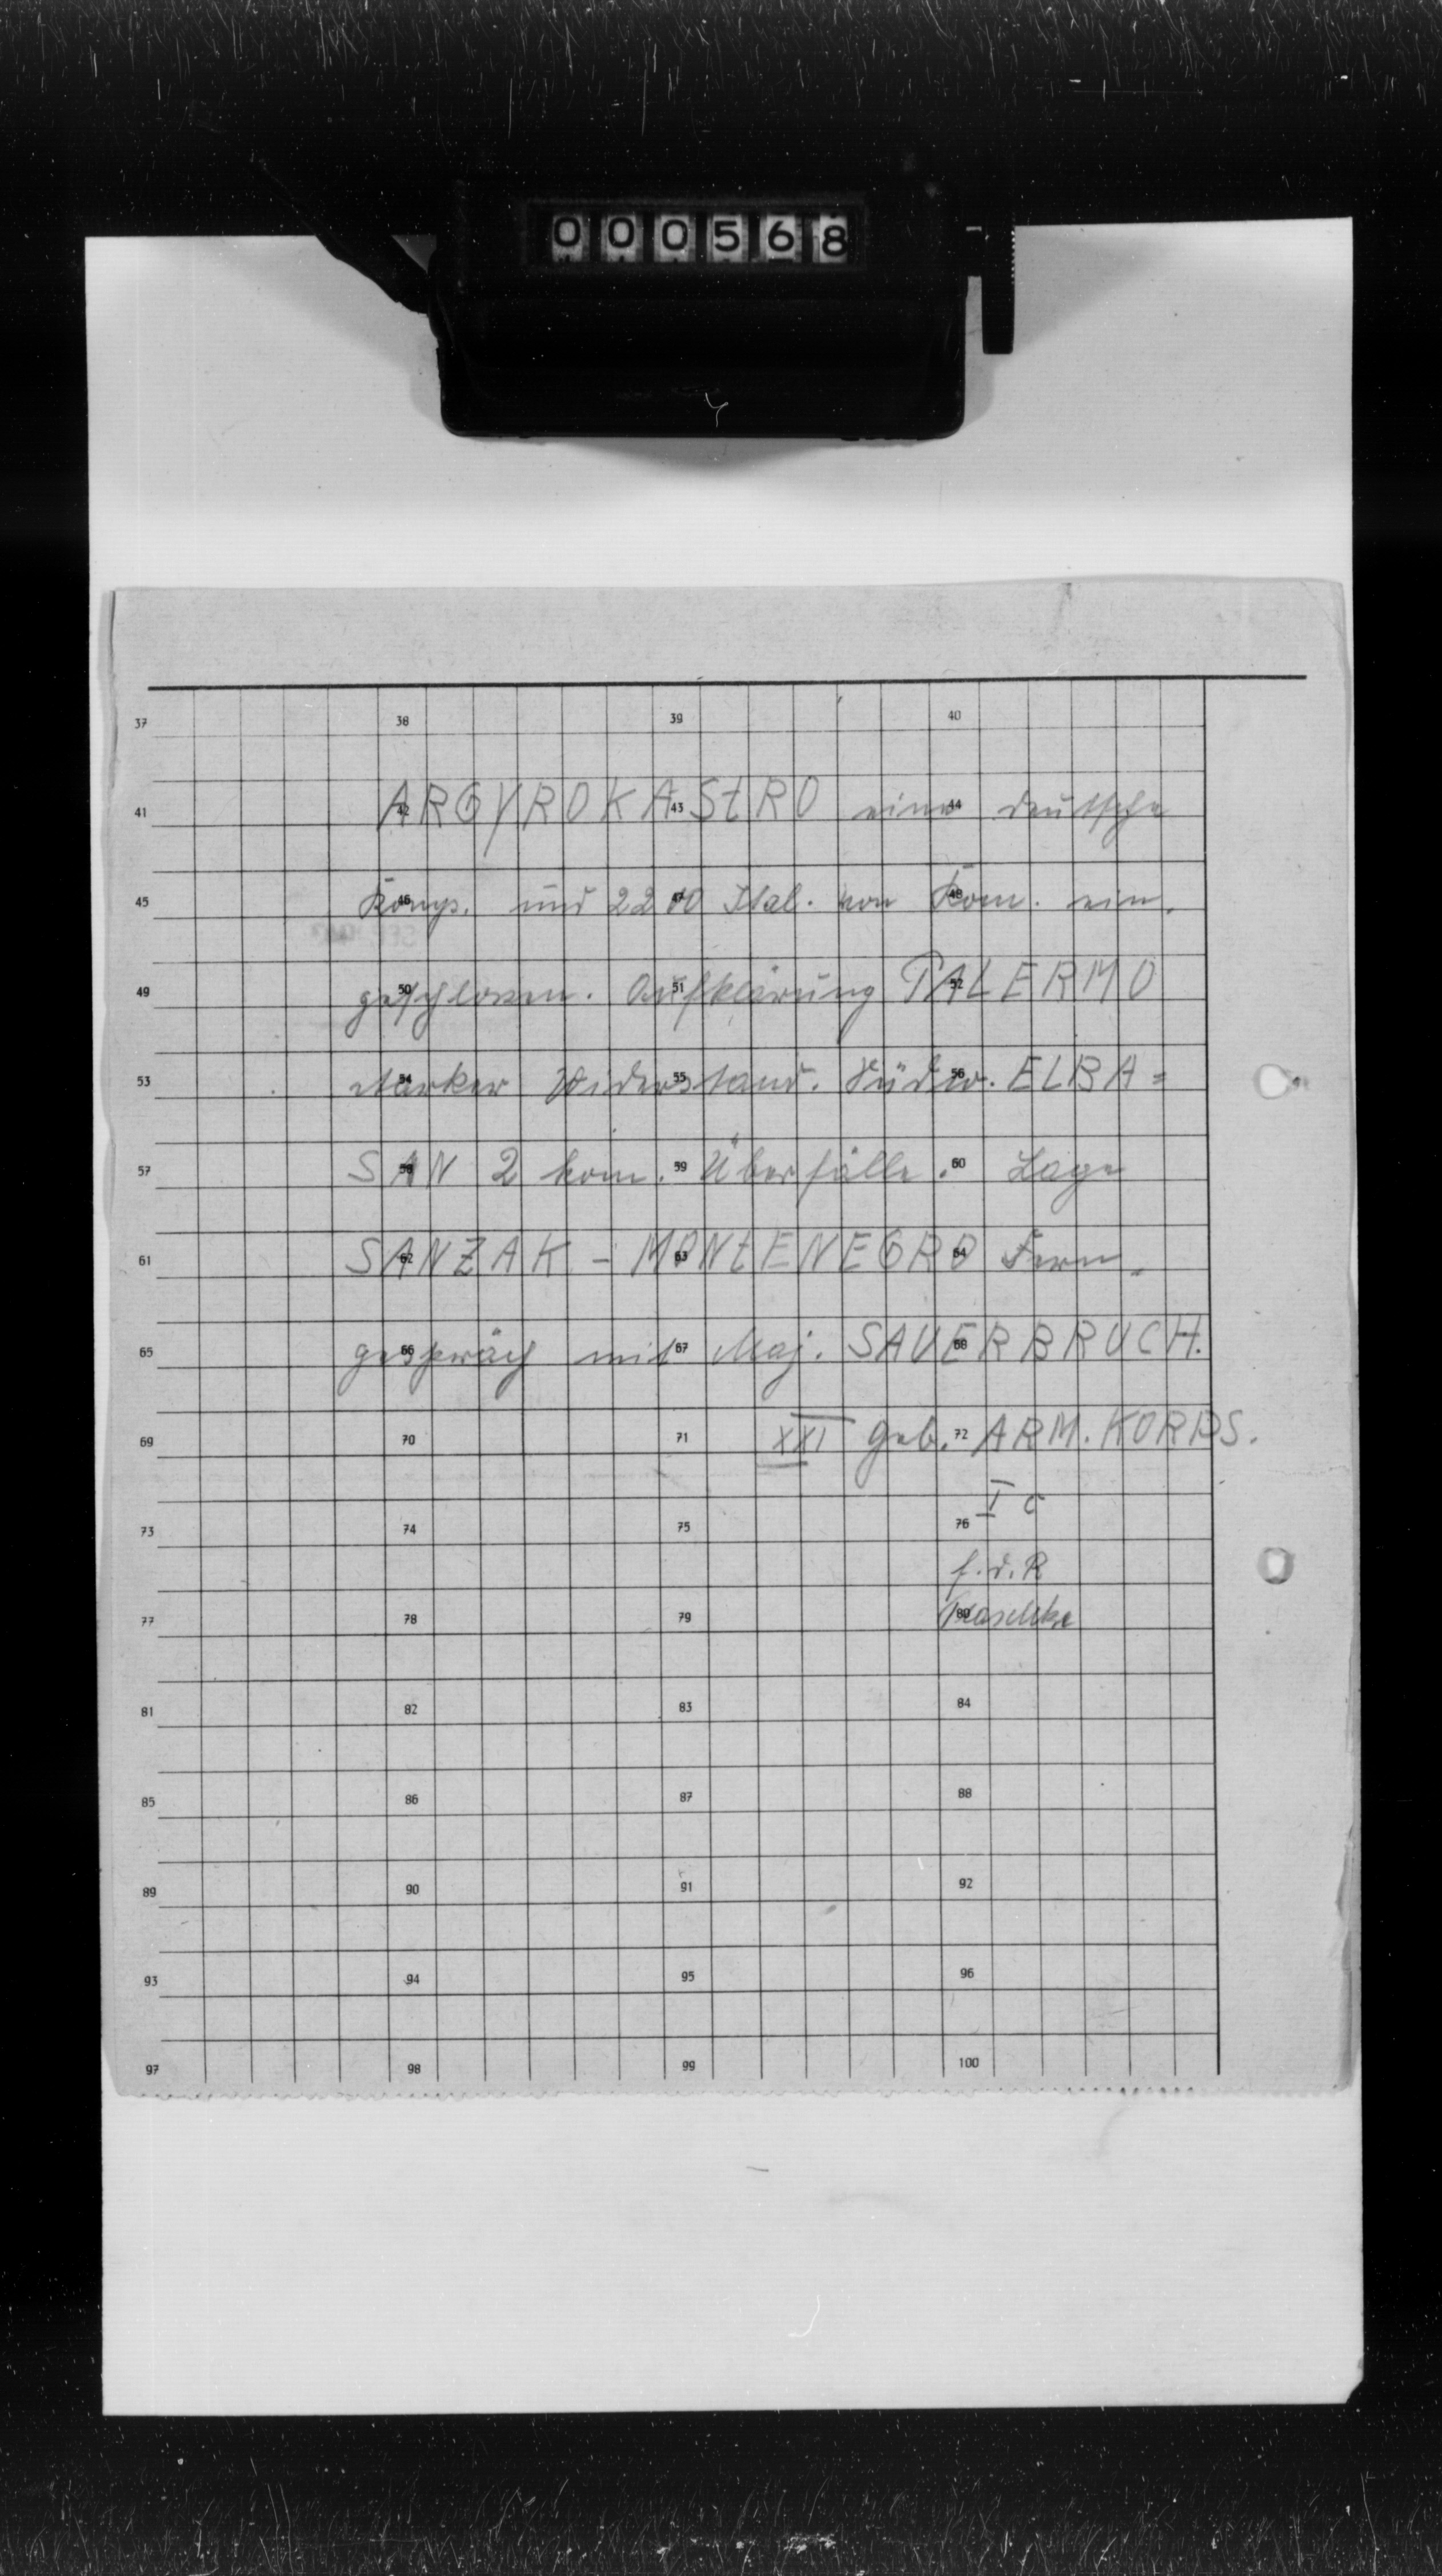 000568
37 38 39 40
41 42 43 44
ARGYROKAStRO eine deutsche
45 46 47 48
Komp. und 2200 Ital. von Kom. ein.
49 50 51 52
geschlossen. Aufklärung PALERMO
53 54 55 56
starker Widerstand. Südw. ELBA=
57 58 59 60
SAN 2 kom. Überfälle. Lage
61 62 63 64
SANZAK - MONtENEGRO Fern-
65 66 67 68
gespräch mit Maj. SAUERBRUCH.
69 70 71 72
XXI Geb. ARM. KORPS.
I c
73 74 75 76
f.d.R
77 78 79 80
81 82 83 84
85 86 87 88
89 90 91 92
93 94 95 96
97 98 99 100